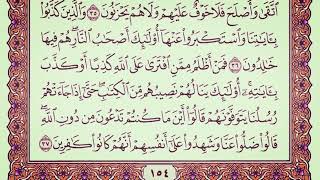 ٱتَّقَىٰ وَأَصْلَحَ فَلَا خَوْفٌ عَلَيْهِمْ وَلَا هُمْ يَحْزَنُونَ ٣٥ وَٱلَّذِينَ كَذَّبُوا۟
بِـَٔايَـٰتِنَا وَٱسْتَكْبَرُوا۟ عَنْهَآ أُو۟لَـٰٓئِكَ أَصْحَـٰبُ ٱلنَّارِ هُمْ فِيهَا
خَـٰلِدُونَ ٣٦ فَمَنْ أَظْلَمُ مِمَّنِ ٱفْتَرَىٰ عَلَى ٱللَّهِ كَذِبًا أَوْ كَذَّبَ
بِـَٔايَـٰتِهِۦٓ أُو۟لَـٰٓئِكَ يَنَالُهُمْ نَصِيبُهُم مِّنَ ٱلْكِتَـٰبِ حَتَّىٰٓ إِذَا جَآءَتْهُمْ
رُسُلُنَا يَتَوَفَّوْنَهُمْ قَالُوٓا۟ أَيْنَ مَا كُنتُمْ تَدْعُونَ مِن دُونِ ٱللَّهِ
قَالُوا۟ ضَلُّوا۟ عَنَّا وَشَهِدُوا۟ عَلَىٰٓ أَنفُسِهِمْ أَنَّهُمْ كَانُوا۟ كَـٰفِرِينَ ٣٧
١٥٤